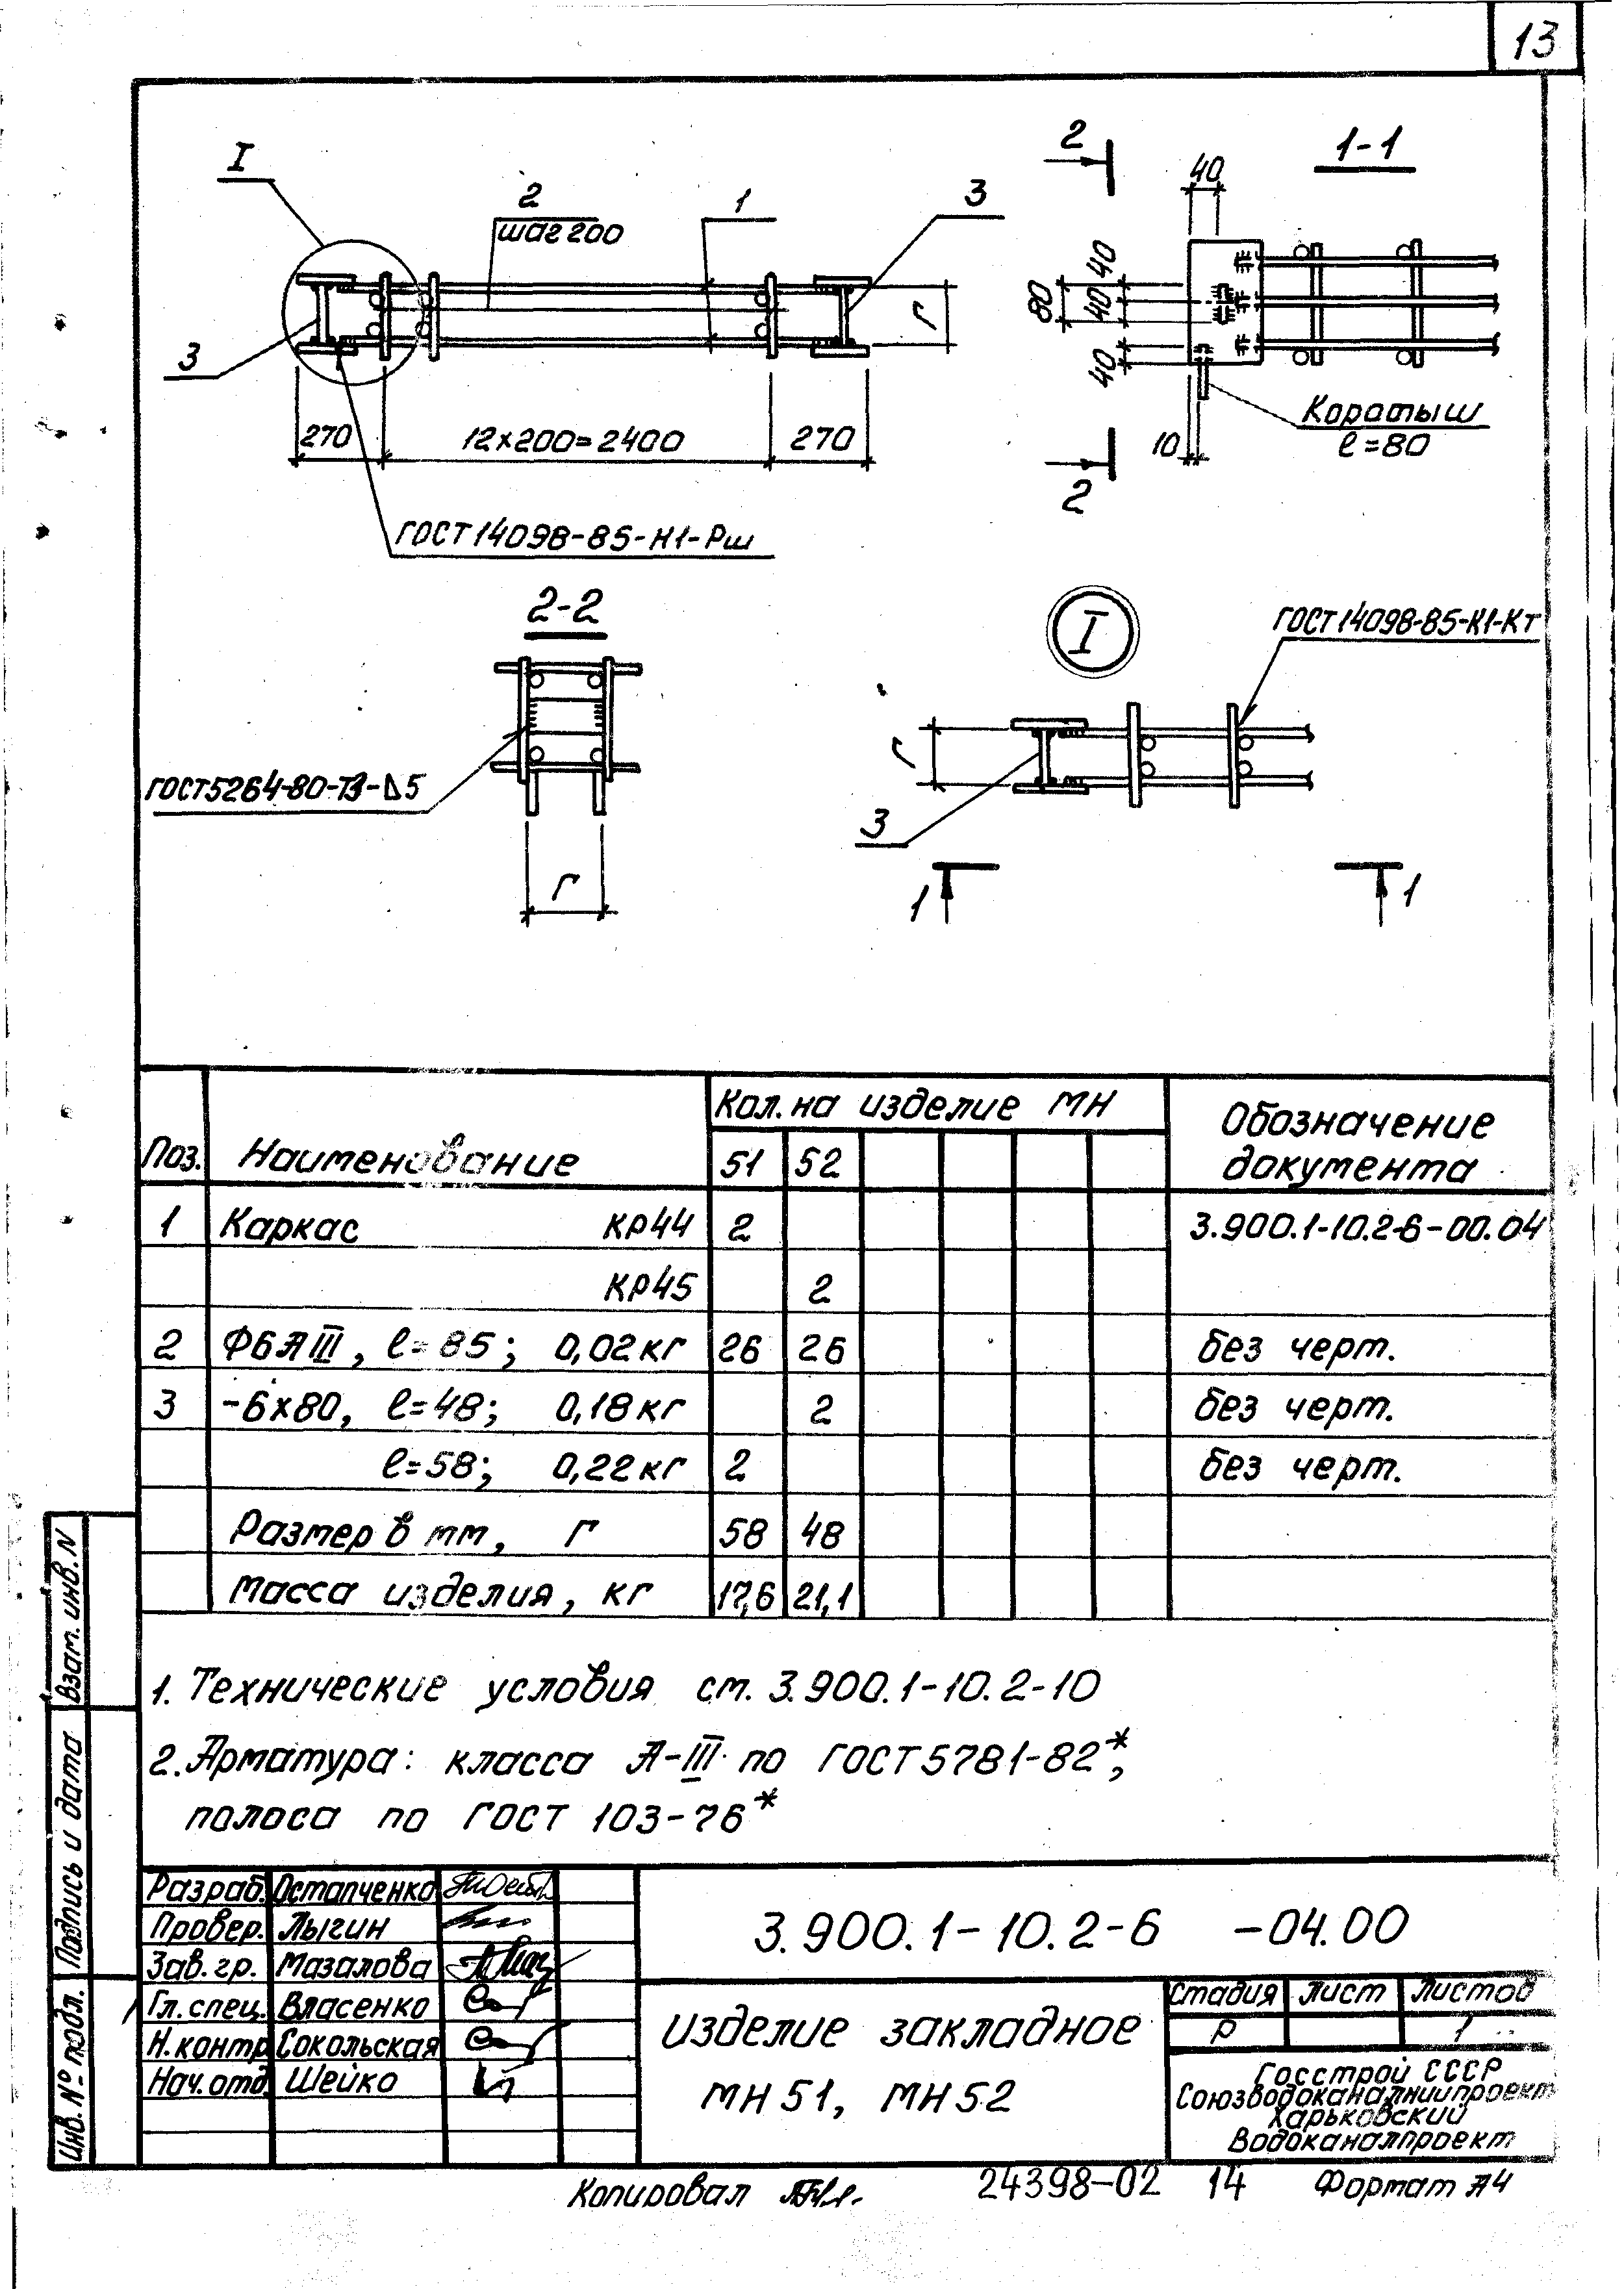 13
I
2
шаг 200
1
3
3
Г
270
12х200=2400
270
ГОСТ14098-85-Н1-Рш
2
1-1
40
40
80
40
40
10
Коротыш
ℓ=80
2
2-2
ГОСТ5264-80-Т3-Δ5
Г
I
ГОСТ14098-85-К1-Кт
Г
3
1
1
Поз. Наименование Кол. на изделие МН Обозначение документа
51 52
1 Каркас КР44 2 3.900.1-10.2-6-00.04
КР45 2
2 Ф6АIII, ℓ=85; 0,02кг 26 26 без черт.
3 -6х80, ℓ=48; 0,18кг 2 без черт.
ℓ=58; 0,22кг 2 без черт.
Размер в мм, Г 58 48
Масса изделия, кг 17,6 21,1
1. Технические условия см. 3.900.1-10.2-10
2. Арматура: класса А-III по ГОСТ5781-82*,
полоса по ГОСТ 103-76*
Взам. инв. N
Подпись и дата
Инв. № подл.
Разраб. Остапченко
Провер. Лыгин
Зав. гр. Мазалова
Гл. спец. Власенко
Н. контр Сокольская
Нач. отд. Шейко
3.900.1-10.2-6 -04.00
Изделие закладное
МН51, МН52
Стадия Лист Листов
Р 1
Госстрой СССР
Союзводоканалниипроект
Харьковский
Водоканалпроект
Копировал
24398-02 14 Формат А4